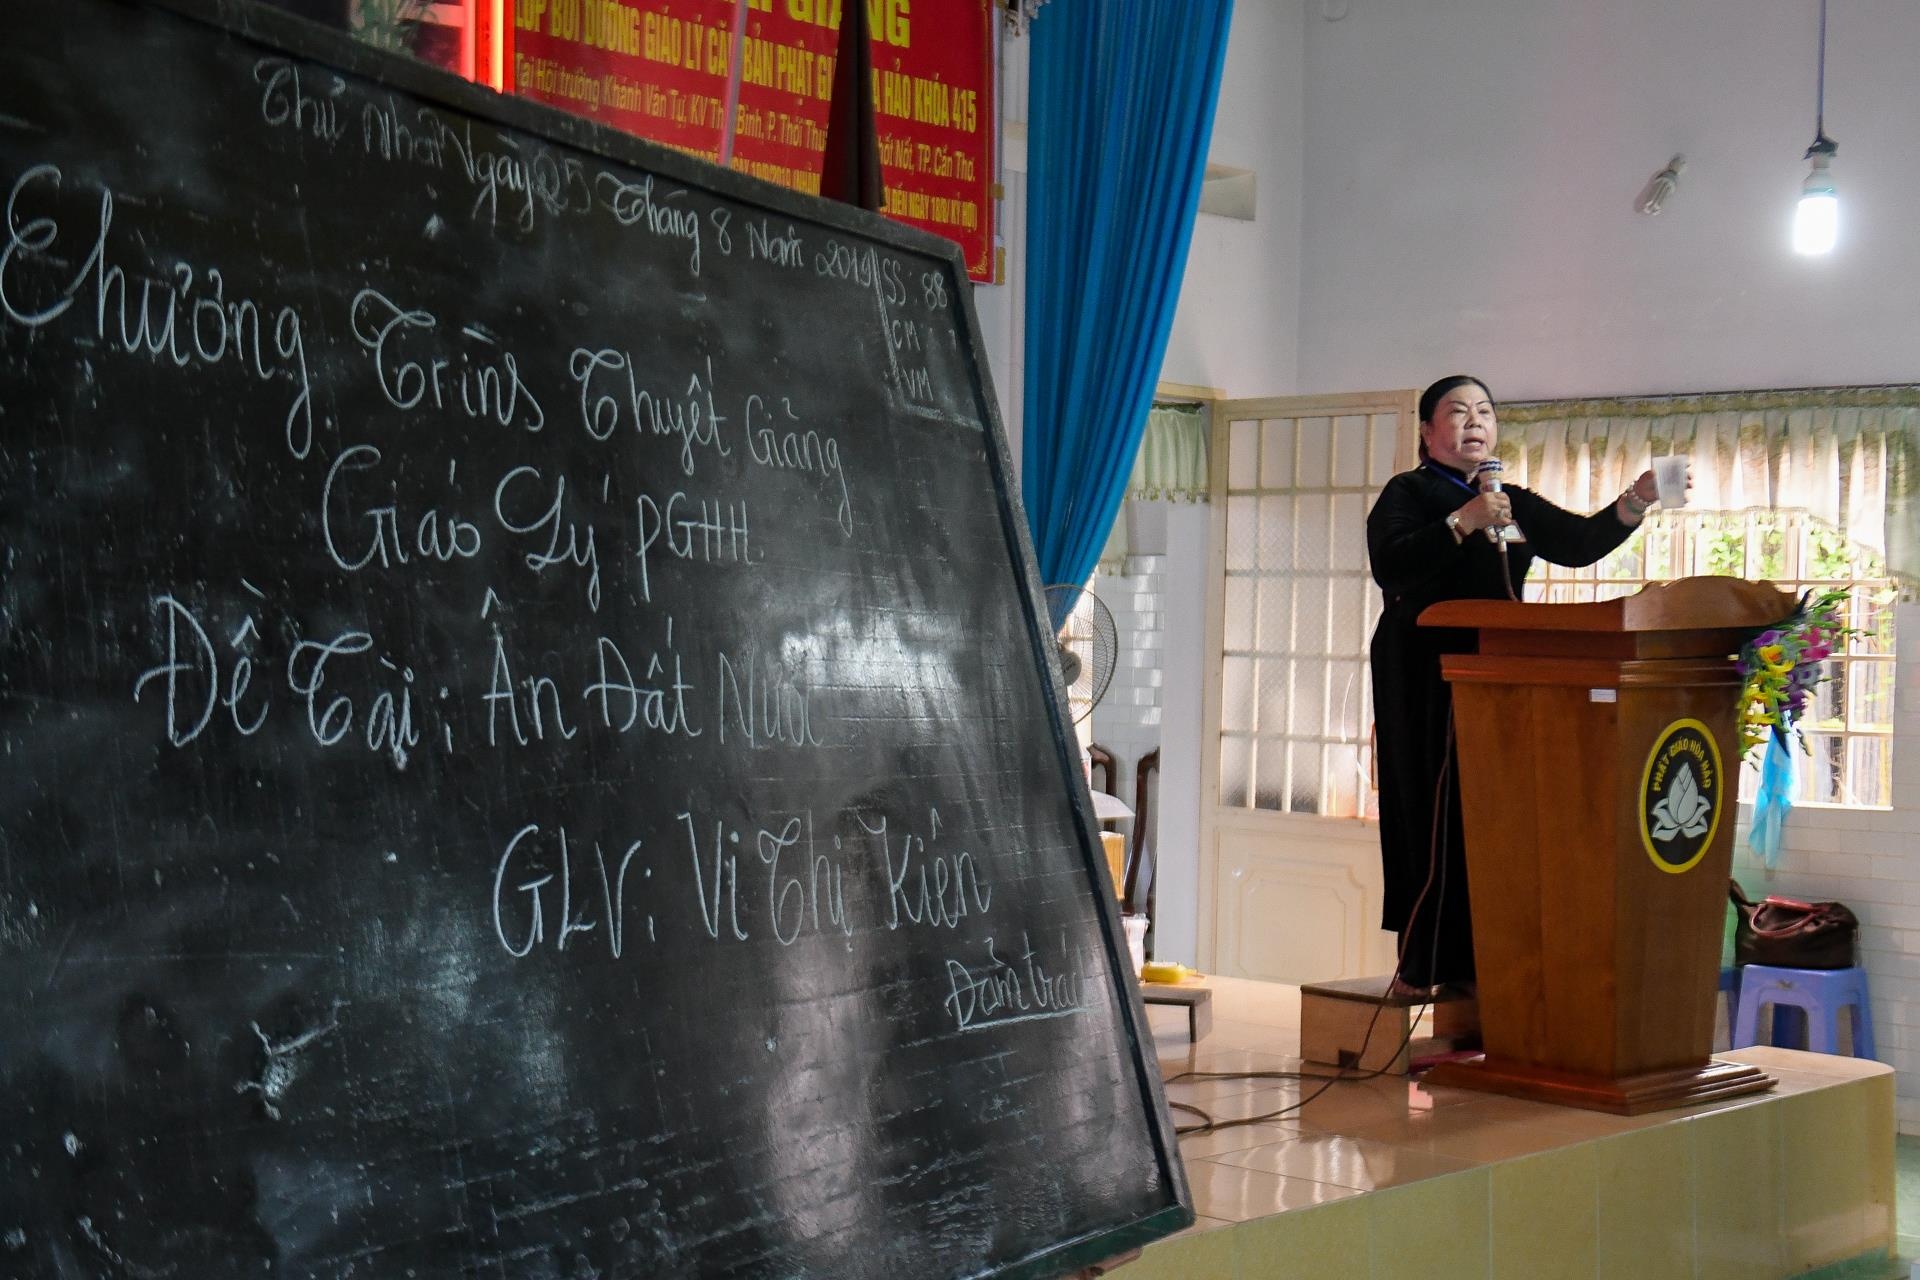 Thứ Nhật Ngày 25 Tháng 8 Năm 2019
SS: 88
CM: 7
VM
Chương Trình Thuyết Giảng
Giáo Lý PGHH
Đề Tài: Ân Đất Nước
GLV: Vi Thị Kiên
Đảm trách
GIẢNG
LỚP BỒI DƯỠNG GIÁO LÝ CĂN BẢN PHẬT HẢO KHÓA 415
Tại Hội trường Khánh Vân Tự, KV Bình, P. Thới Nốt, TP. Cần Thơ.
ĐẾN NGÀY 18/8/ KỶ HỢI)
PHẬT GIÁO HÒA HẢO